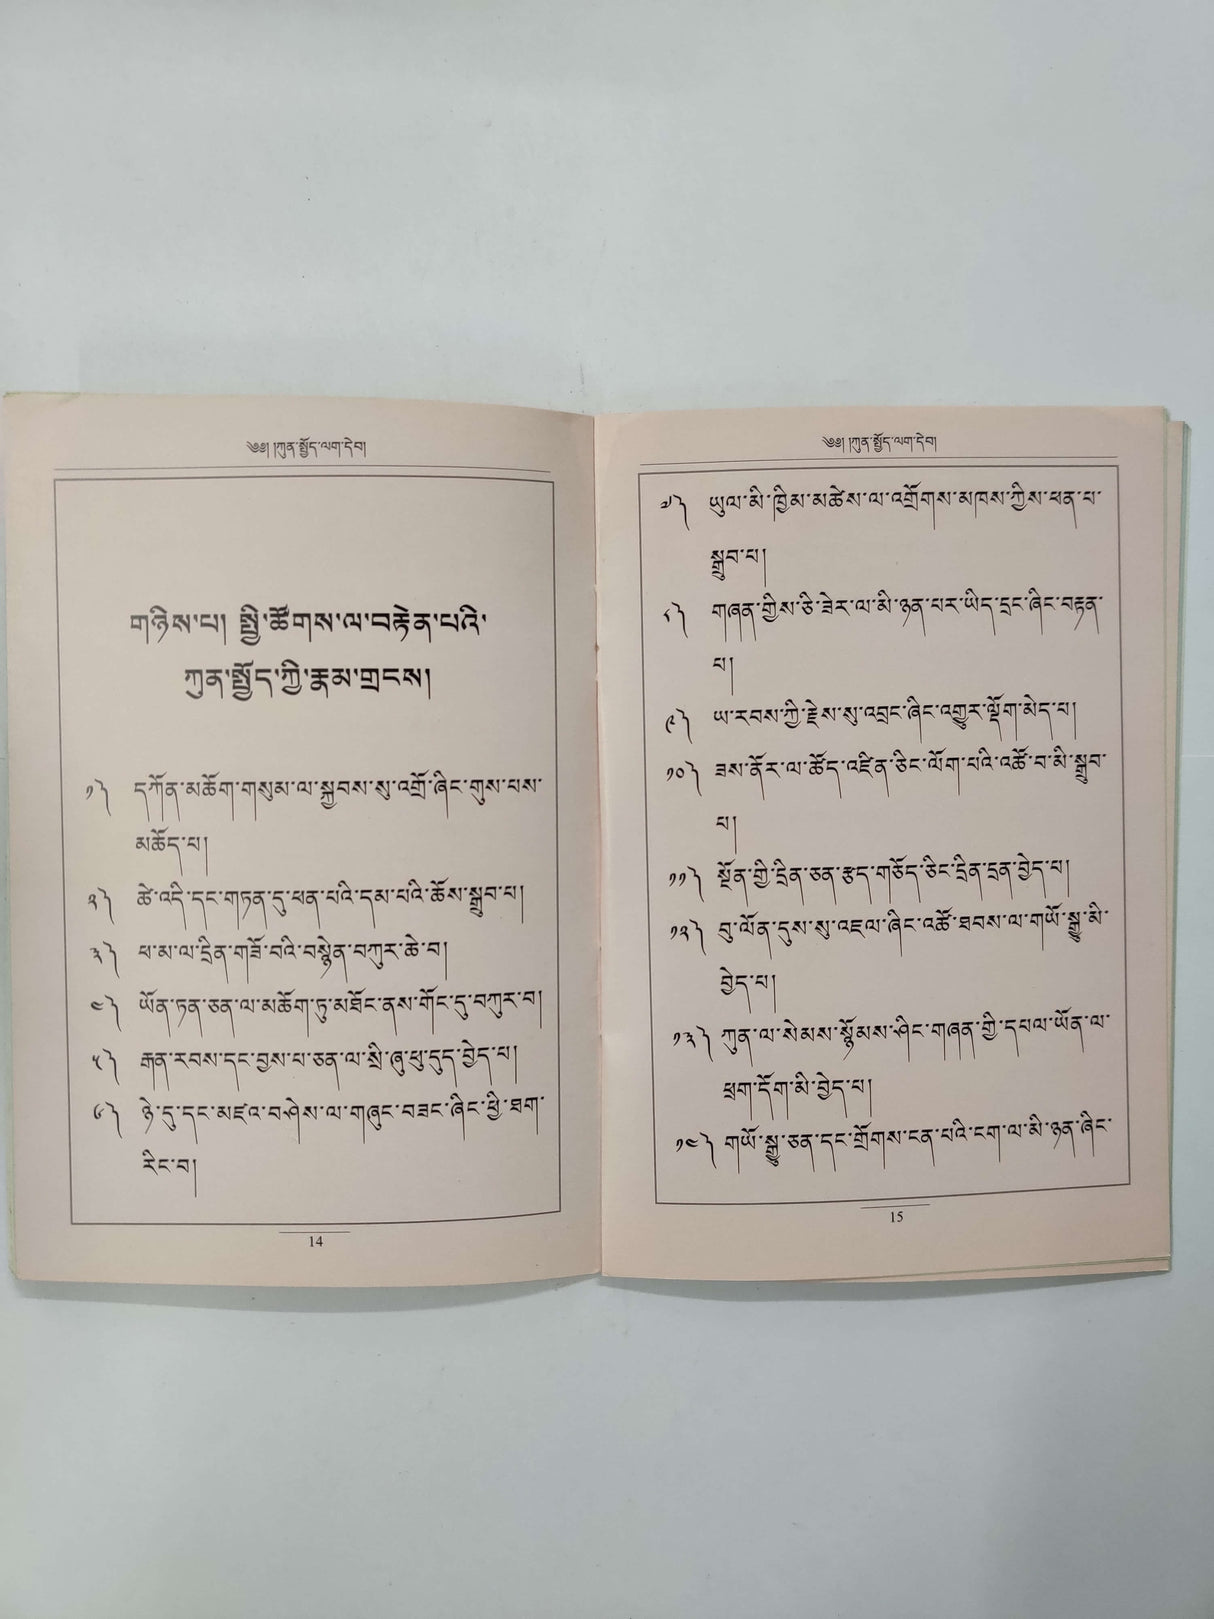 ༄༅། །ཀུན་སྤྱོད་ལག་དེབ།
གཉིས་པ། སྤྱི་ཚོགས་ལ་བརྟེན་པའི་
ཀུན་སྤྱོད་ཀྱི་རྣམ་གྲངས།
༡༽ དཀོན་མཆོག་གསུམ་ལ་སྐྱབས་སུ་འགྲོ་ཞིང་གུས་པས་
མཆོད་པ།
༢༽ ཚེ་འདི་དང་གཏན་དུ་ཕན་པའི་དམ་པའི་ཆོས་སྒྲུབ་པ།
༣༽ ཕ་མ་ལ་དྲིན་གཟོ་བའི་བསྙེན་བཀུར་ཆེ་བ།
༤༽ ཡོན་ཏན་ཅན་ལ་མཆོག་ཏུ་མཐོང་ནས་གོང་དུ་བཀུར་བ།
༥༽ རྒན་རབས་དང་བྱས་པ་ཅན་ལ་སྲི་ཞུ་ཕུ་དུད་བྱེད་པ།
༦༽ ཉེ་དུ་དང་མཛའ་བཤེས་ལ་གཞུང་བཟང་ཞིང་ཕྱི་ཐག་
རིང་བ།
14
༄༅། །ཀུན་སྤྱོད་ལག་དེབ།
༧༽ ཡུལ་མི་ཁྱིམ་མཚེས་ལ་འགྲོགས་མཁས་ཀྱིས་ཕན་པ་
སྒྲུབ་པ།
༨༽ གཞན་གྱིས་ཅི་ཟེར་ལ་མི་ཉན་པར་ཡིད་དྲང་ཞིང་བརྟན་
པ།
༩༽ ཡ་རབས་ཀྱི་རྗེས་སུ་འབྲང་ཞིང་འགྱུར་ལྡོག་མེད་པ།
༡༠༽ ཟས་ནོར་ལ་ཚོད་འཛིན་ཅིང་ལོག་པའི་འཚོ་བ་མི་སྒྲུབ་
པ།
༡༡༽ སྔོན་གྱི་དྲིན་ཅན་རྩད་གཅོད་ཅིང་དྲིན་དྲན་བྱེད་པ།
༡༢༽ བུ་ལོན་དུས་སུ་འཇལ་ཞིང་འཚོ་ཐབས་ལ་གཡོ་སྒྱུ་མི་
བྱེད་པ།
༡༣༽ ཀུན་ལ་སེམས་སྙོམས་ཤིང་གཞན་གྱི་དཔལ་ཡོན་ལ་
ཕྲག་དོག་མི་བྱེད་པ།
༡༤༽ གཡོ་སྒྱུ་ཅན་དང་གྲོགས་ངན་པའི་ངག་ལ་མི་ཉན་ཞིང་
15